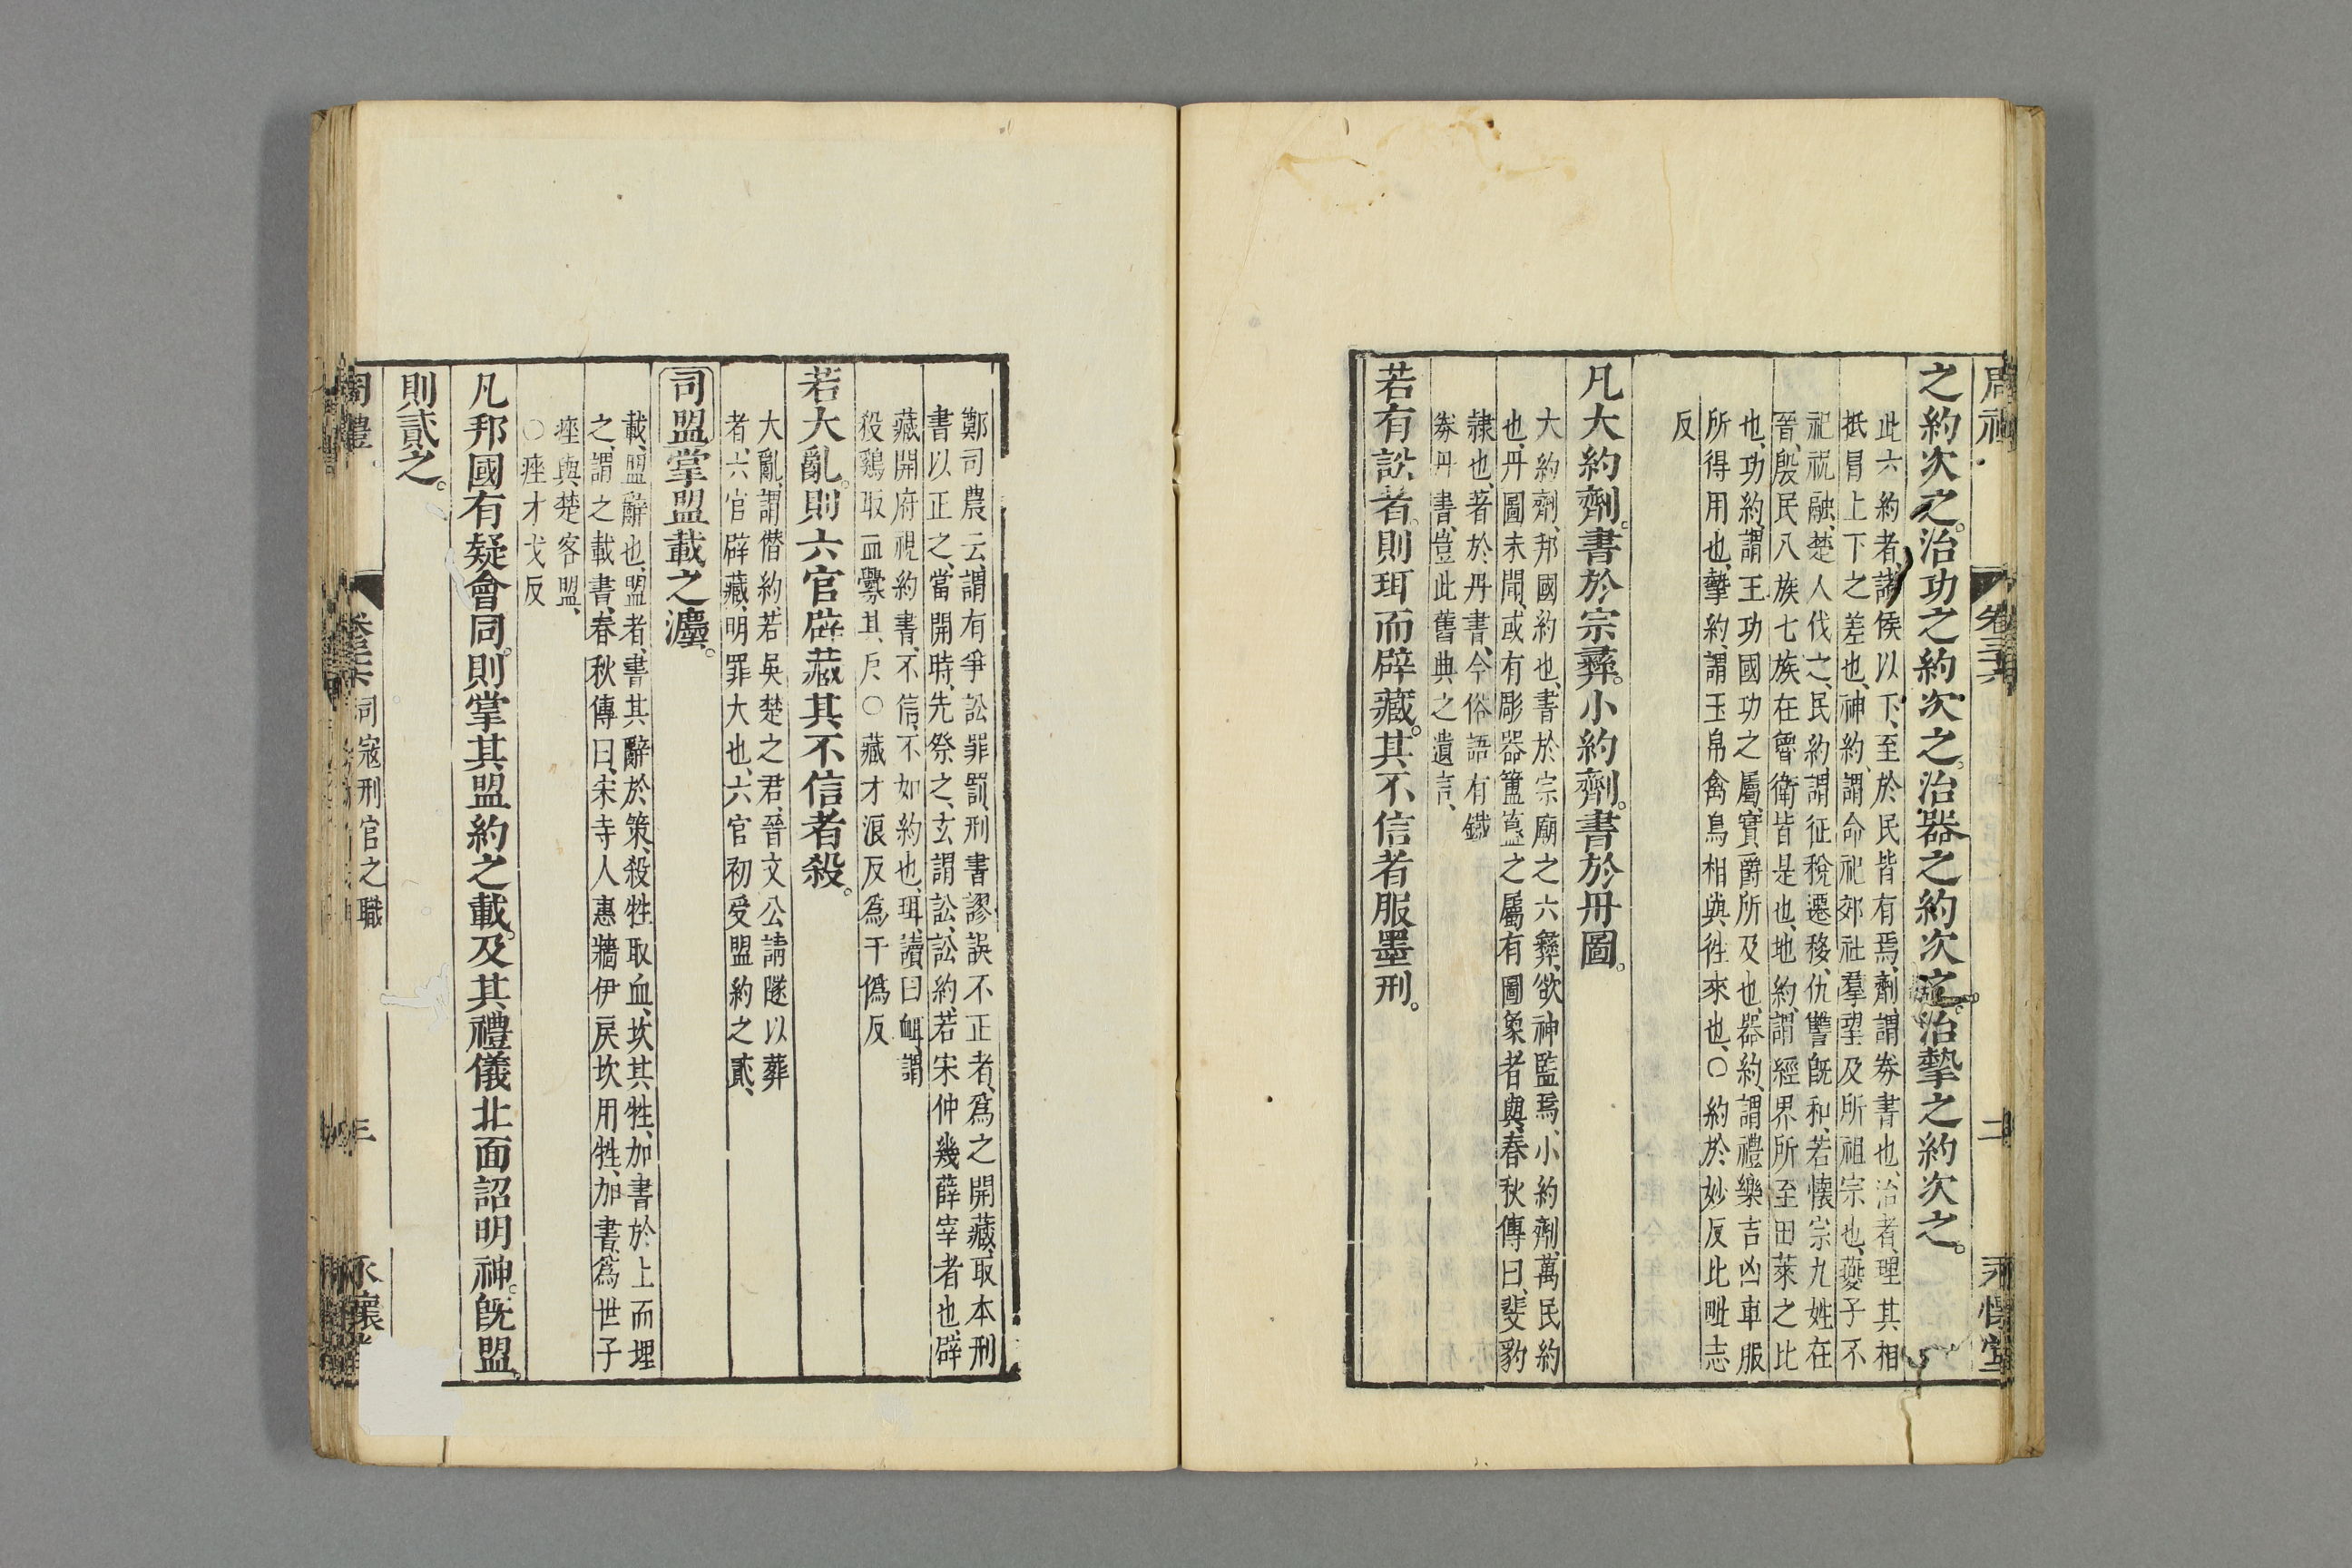 周禮
卷三六
二
永懷堂
之約次之。治功之約次之。治器之約次之。治摯之約次之。
此六約者、諸侯以下、至於民皆有焉、劑、謂券書也、治者、理其相
抵冒上下之差也、神約、謂命祀郊社羣望及所祖宗也、夔子不
祀祝融、楚人伐之、民約、謂征稅遷移、仇讐旣和、若懷宗九姓在
晉、殷民六族七族在魯衛皆是也、地約、謂經界所至田萊之比
也、功約、謂王功國功之屬、賞爵所及也、器約、謂禮樂吉凶車服
所得用也、摯約、謂玉帛禽鳥相與往來也、○約於妙反比毗志
反
凡大約劑。書於宗彝。小約劑。書於丹圖。
大約劑、邦國約也、書於宗廟之六彝、欲神監焉、小約劑、萬民約
也、丹圖未聞、或有彫器簠簋之屬有圖象者與、春秋傳曰、斐豹
隸也、著於丹書、今俗語有鐵
券丹書、豈此舊典之遺言、
若有訟者。則珥而辟藏。其不信者服墨刑。
鄭司農云、謂有爭訟罪罰、刑書謬誤不正者、爲之開藏、取本刑
書以正之、當開時、先祭之、玄謂訟、訟約、若宋仲幾薛宰者也、辟
藏開府視約書、不信、不如約也、珥、讀曰衈、謂
殺鷄取血釁其戶○藏才浪反爲于僞反
若大亂。則六官辟藏其不信者殺。
大亂、謂僣約、若吳楚之君、晉文公請隧以葬
者、六官辟藏、明罪大也、六官初受盟約之貳、
司盟掌盟載之灋。
載、盟辭也、盟者、書其辭於策、殺牲取血、坎其牲、加書於上而埋
之、謂之載書、春秋傳曰、宋寺人惠牆伊戾坎用牲、加書、爲世子
痤與楚客盟、
○痤才戈反
凡邦國有疑會同。則掌其盟約之載。及其禮儀北面詔明神。旣盟。
則貳之。
周禮
卷三六
司寇刑官之職
三
永懷堂